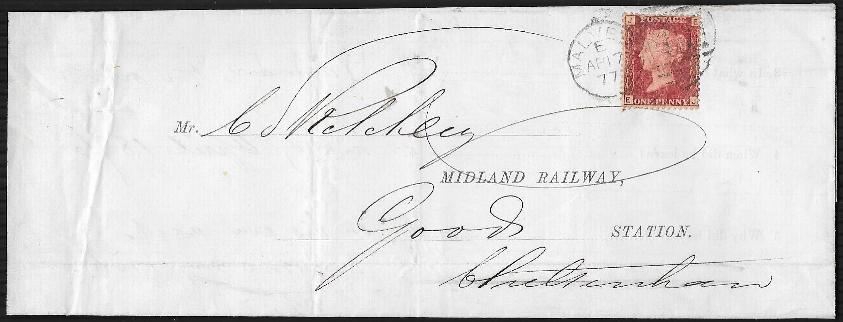 POSTAGE
MALVE
E
AP 17
77
ONE PENNY
Mr. C
MIDLAND RAILWAY,
Goods STATION.
Cheltenham